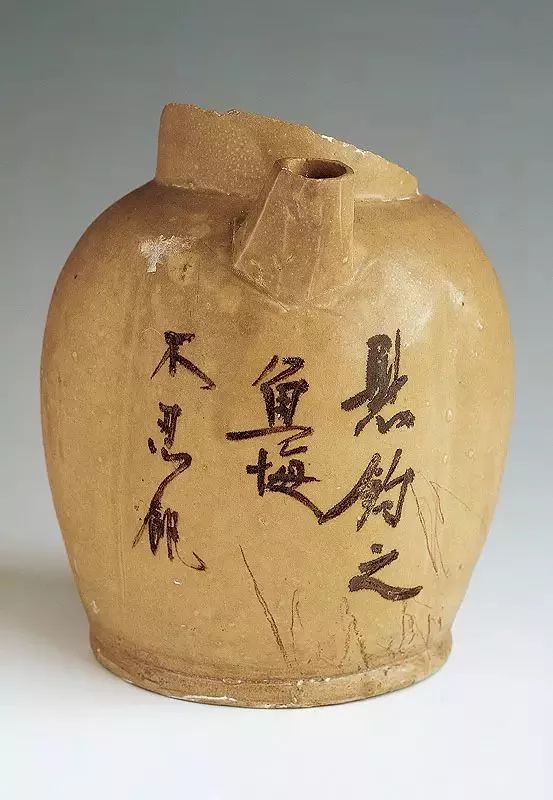 悬钓之
鱼悔
不忍飢